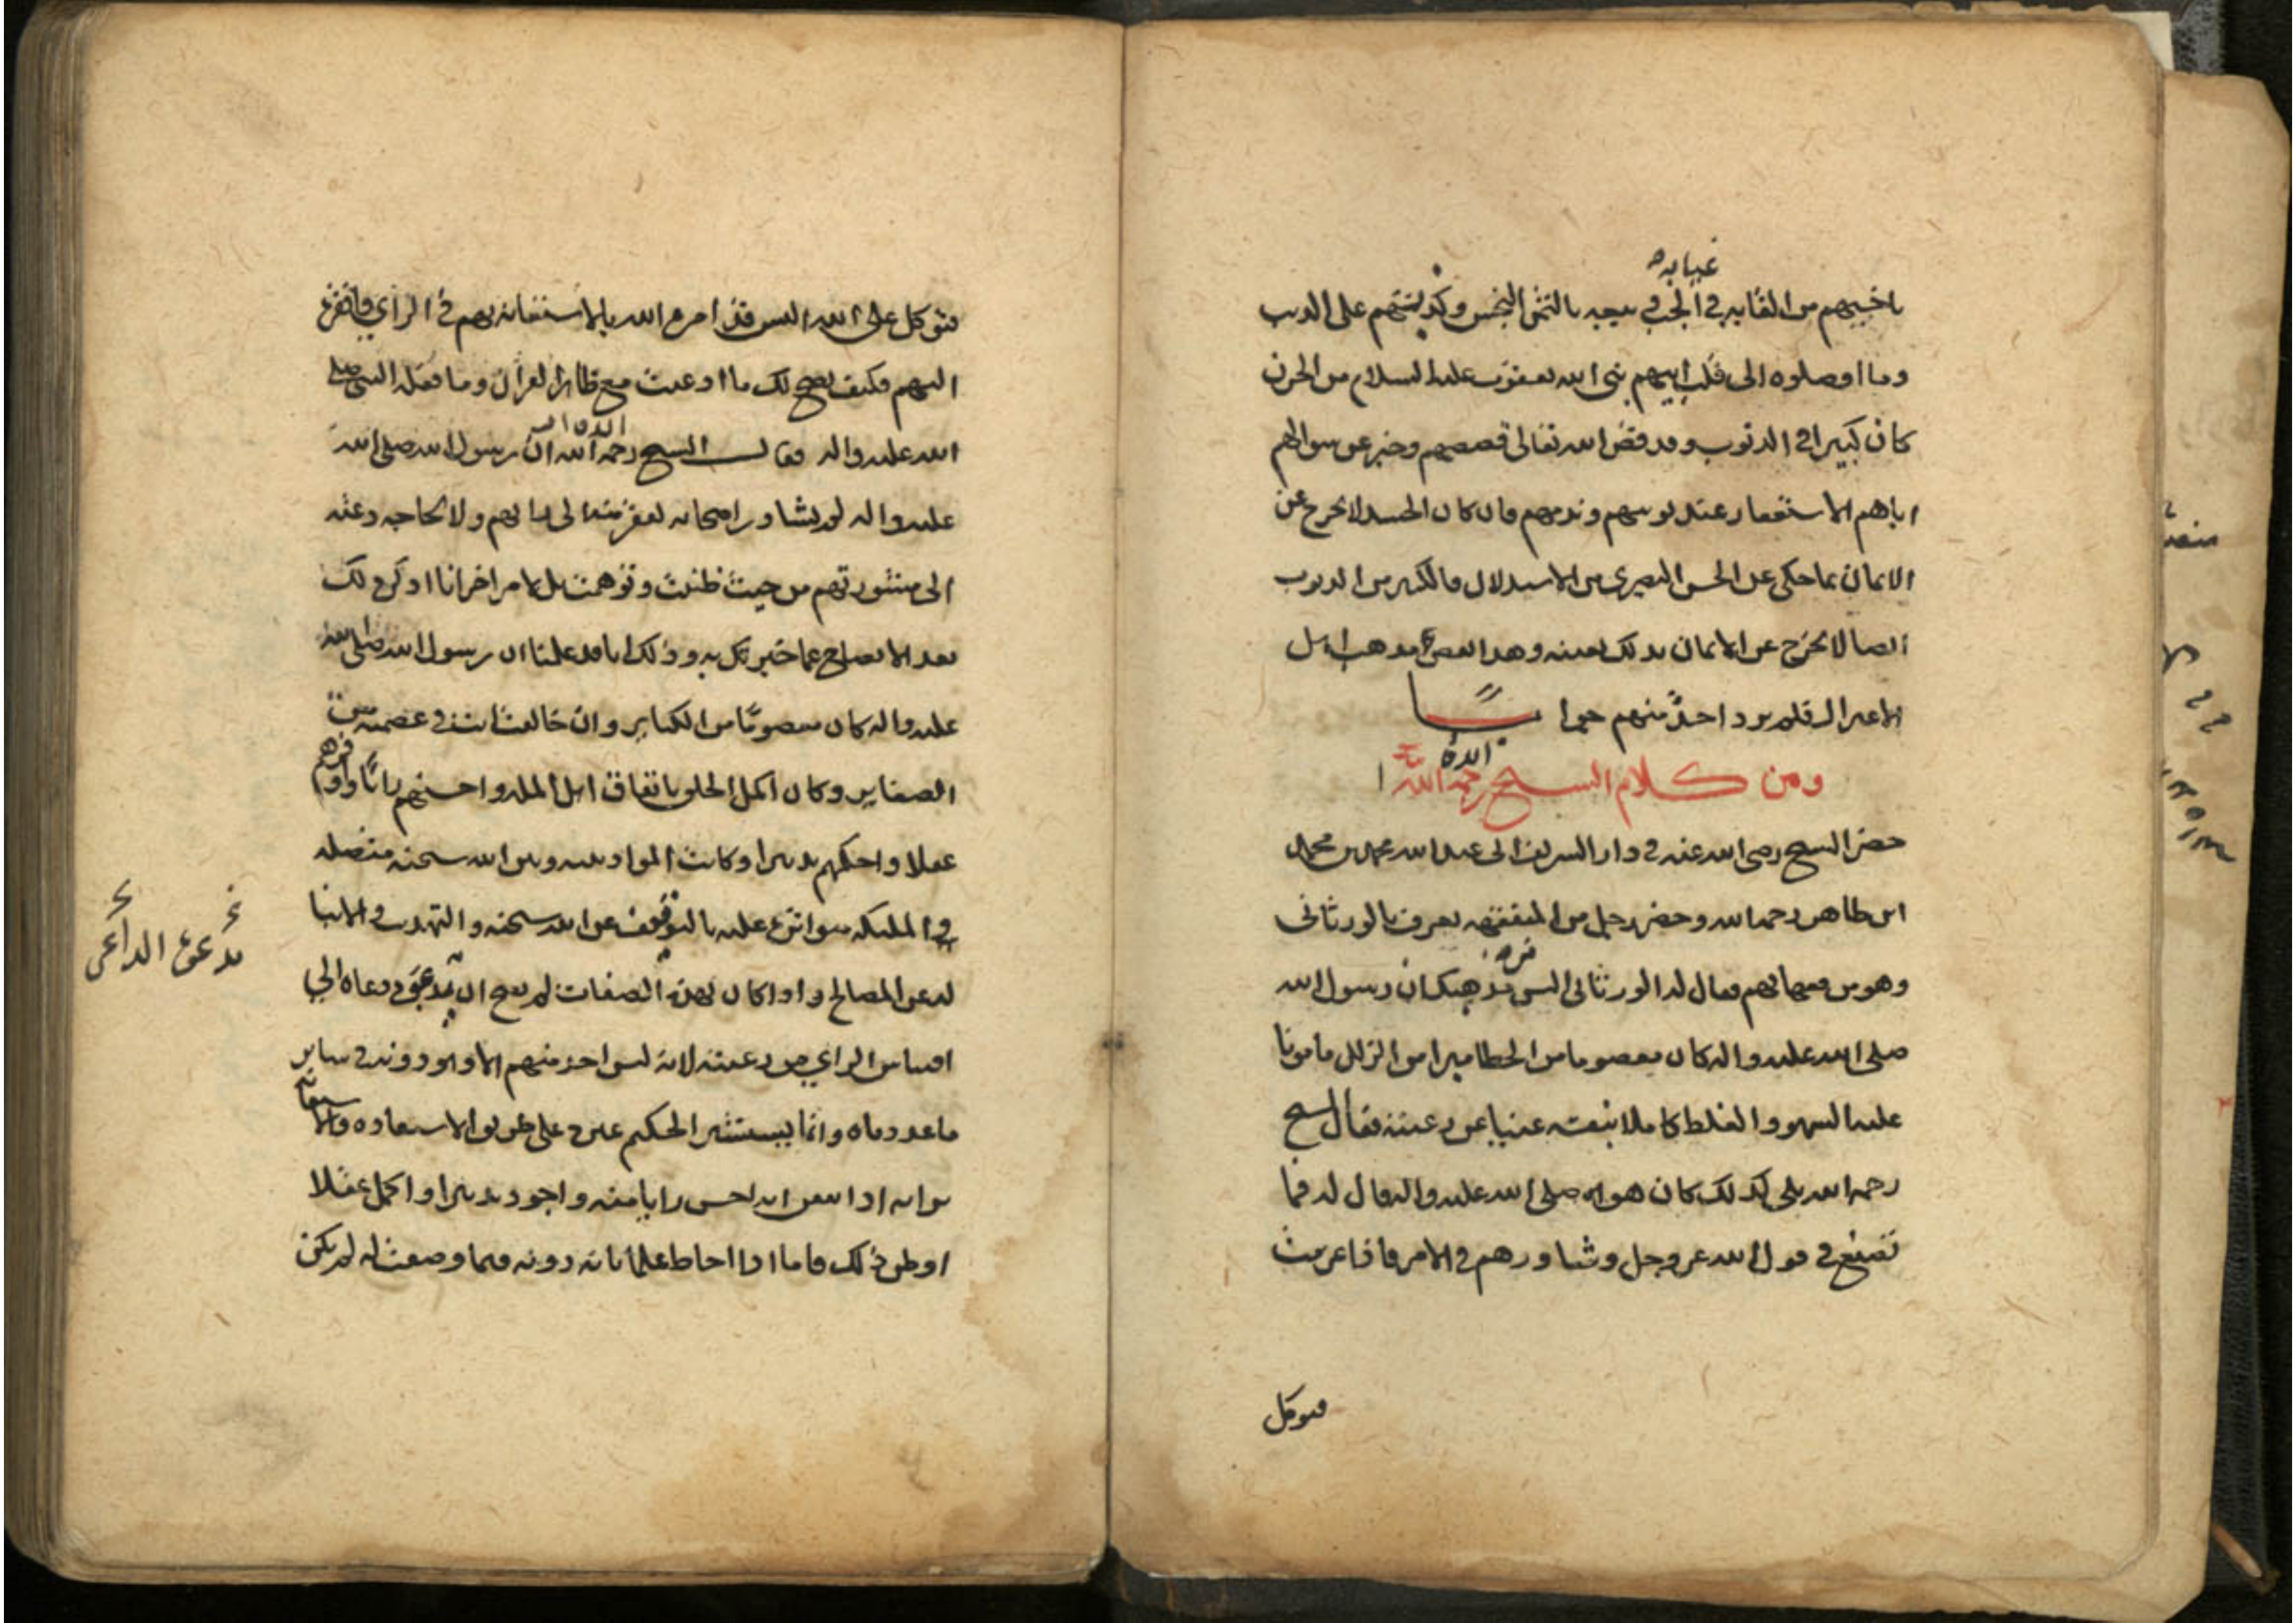 غيابه
باخيهم من القائه في الجب وبيعه بالثمن البخس وكذبهم على الذيب
وما اوصلوه الى قلب ابيهم نبي الله يعقوب عليه السلام من الحزن
كان كبيرا في الذنوب وقد قص الله تعالى قصصهم وخبر عن سوالهم
اباهم الاستغفار عند توبتهم وندمهم فان كان الحسد لا يخرج عن
الايمان بما حكى عن الحسن البصري من الاستدلال فالكبير من الذنوب
ايضا لا يخرج عن الايمان بذلك بعينه وهذا نقض مذهب اهل
الاعتزال فلم يرد احد منهم جوابا
ايده
ومن كلام الشيخ رحمه الله
حضر الشيخ رضي الله عنه في دار الشريف ابي عبد الله محمد بن محمد
ابن طاهر رحمه الله وحضر رجل من المتفقهة يعرف بالورثاني
وهو من فقهائهم فقال له الورثاني اليس من مذهبك ان رسول الله
صلى الله عليه واله كان معصوما من الخطا مبرا من الزلل مامونا
عليه السهو والغلط كاملا بنفسه غنيا عن رعيته فقال الشيخ
رحمه الله بلى كذلك كان هو صلى الله عليه واله قال له فما
تصنع في قول الله عز وجل وشاورهم في الامر فاذا عزمت
فتوكل
فتوكل على الله اليس قد امره الله بالاستعانة بهم في الراي وافقره
اليهم فكيف يصح لك ما ادعيت مع ظاهر القران وما فعله النبي صلى
ايده الله
الله عليه واله فقال الشيخ رحمه الله ان رسول الله صلى الله
عليه واله لم يشاور اصحابه لفقر منه الى رايهم ولا لحاجة دعته
الى مشورتهم من حيث ظننت وتوهمت بل لامر اخر انا اذكره لك
بعد الايضاح عما خبرتك به وذلك انا قد علمنا ان رسول الله صلى الله
عليه واله كان معصوما من الكباير وان خالفت انت في عصمته من
الصغاير وكان اكمل الخلق باتفاق اهل الملة واحسنهم رايا واوفرهم
عقلا واحكمهم تدبيرا وكانت المواد بينه وبين الله سبحنه متصله
والمليكه تتواتر عليه بالتوقيف عن الله سبحنه والتهذيب والانبا
له عن المصالح واذا كان بهذه الصفات لم يصح ان يدعوه داع الى
تدعوه الدواعي
اقتباس الراي من رعيته لانه ليس احد منهم الا وهو دونه في ساير
ما عددناه وانما يستشير الحكيم غيره على طريق الاستفادة والاستعانة
برايه اذا تيقن انه احسن رايا منه واجود تدبيرا واكمل عقلا
او ظن ذلك فاما اذا احاط علما بانه دونه فيما وصفت له لم يكن